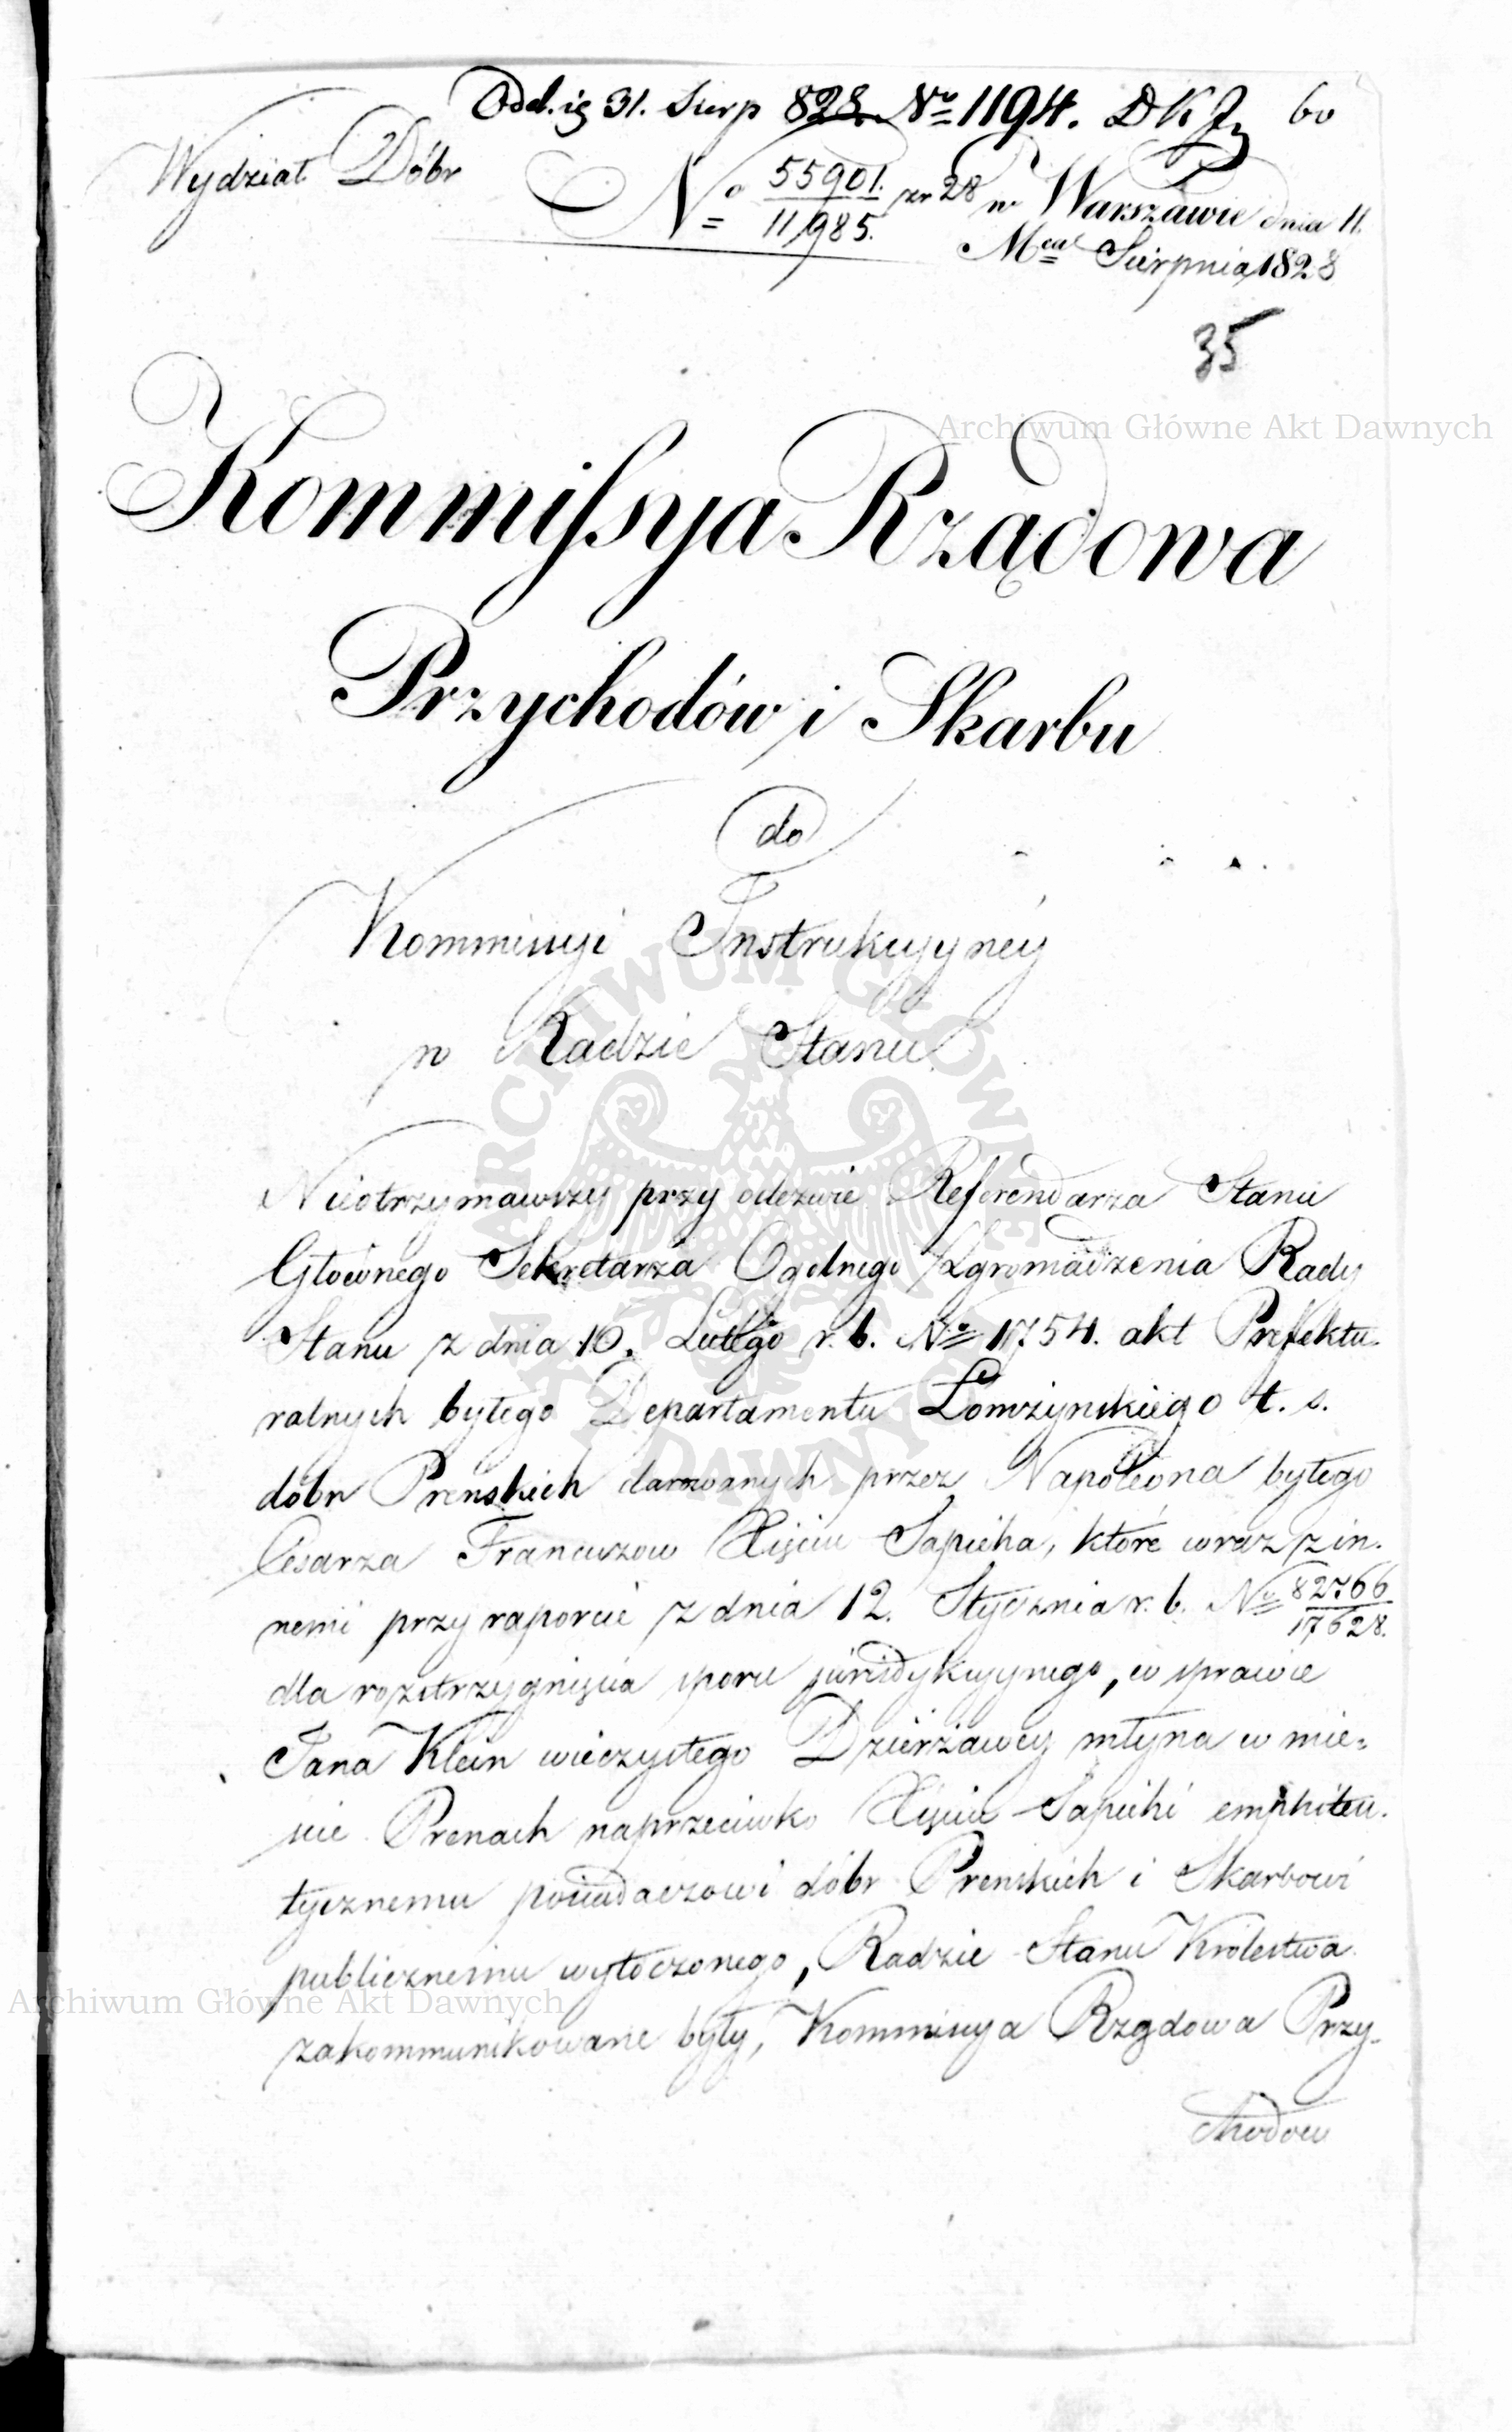 Odd. ig 31. Sierp 828. No 1194. DKJ 60
Wydział Dóbr
No 55901./11985. zr 28 w Warszawie dnia 11.
Mca Sierpnia 1828
35
Archiwum Główne Akt Dawnych
Kommissya Rządowa
Przychodów i Skarbu
do
Kommissyi Instrukcyyney
w Radzie Stanu
ARCHIWUM GŁÓWNE AKT DAWNYCH
Nieotrzymawszy przy odezwie Referendarza Stanu
Głównego Sekretarza Ogolnego Zgromadzenia Rady
Stanu z dnia 10. Lutego r. b. No 1754. akt Prefektu-
ralnych byłego Departamentu Łomżynskiego t. s.
dóbr Preńskich darowanych przez Napoleona byłego
Cesarza Francuzow Xięciu Sapieha, które wraz z in-
nemi przy raporcie z dnia 12. Stycznia r. b. No 82766/17628.
dla rozstrzygnięcia sporu juridykcyynego, w sprawie
Jana Klein wieczystego Dzierżawcy młyna w mie-
scie Prenach naprzeciwko Xięciu Sapiehi emphiteu-
tycznemu posiadaczowi dóbr Prenskich i Skarbowi
publicznemu wytoczonego, Radzie Stanu Królestwa
Archiwum Główne Akt Dawnych
zakommunikowane były, Kommissya Rządowa Przy-
chodow